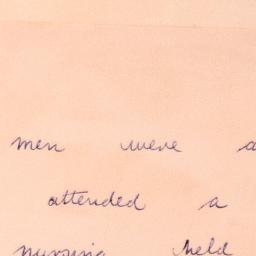 men were a
attended a
nursing held